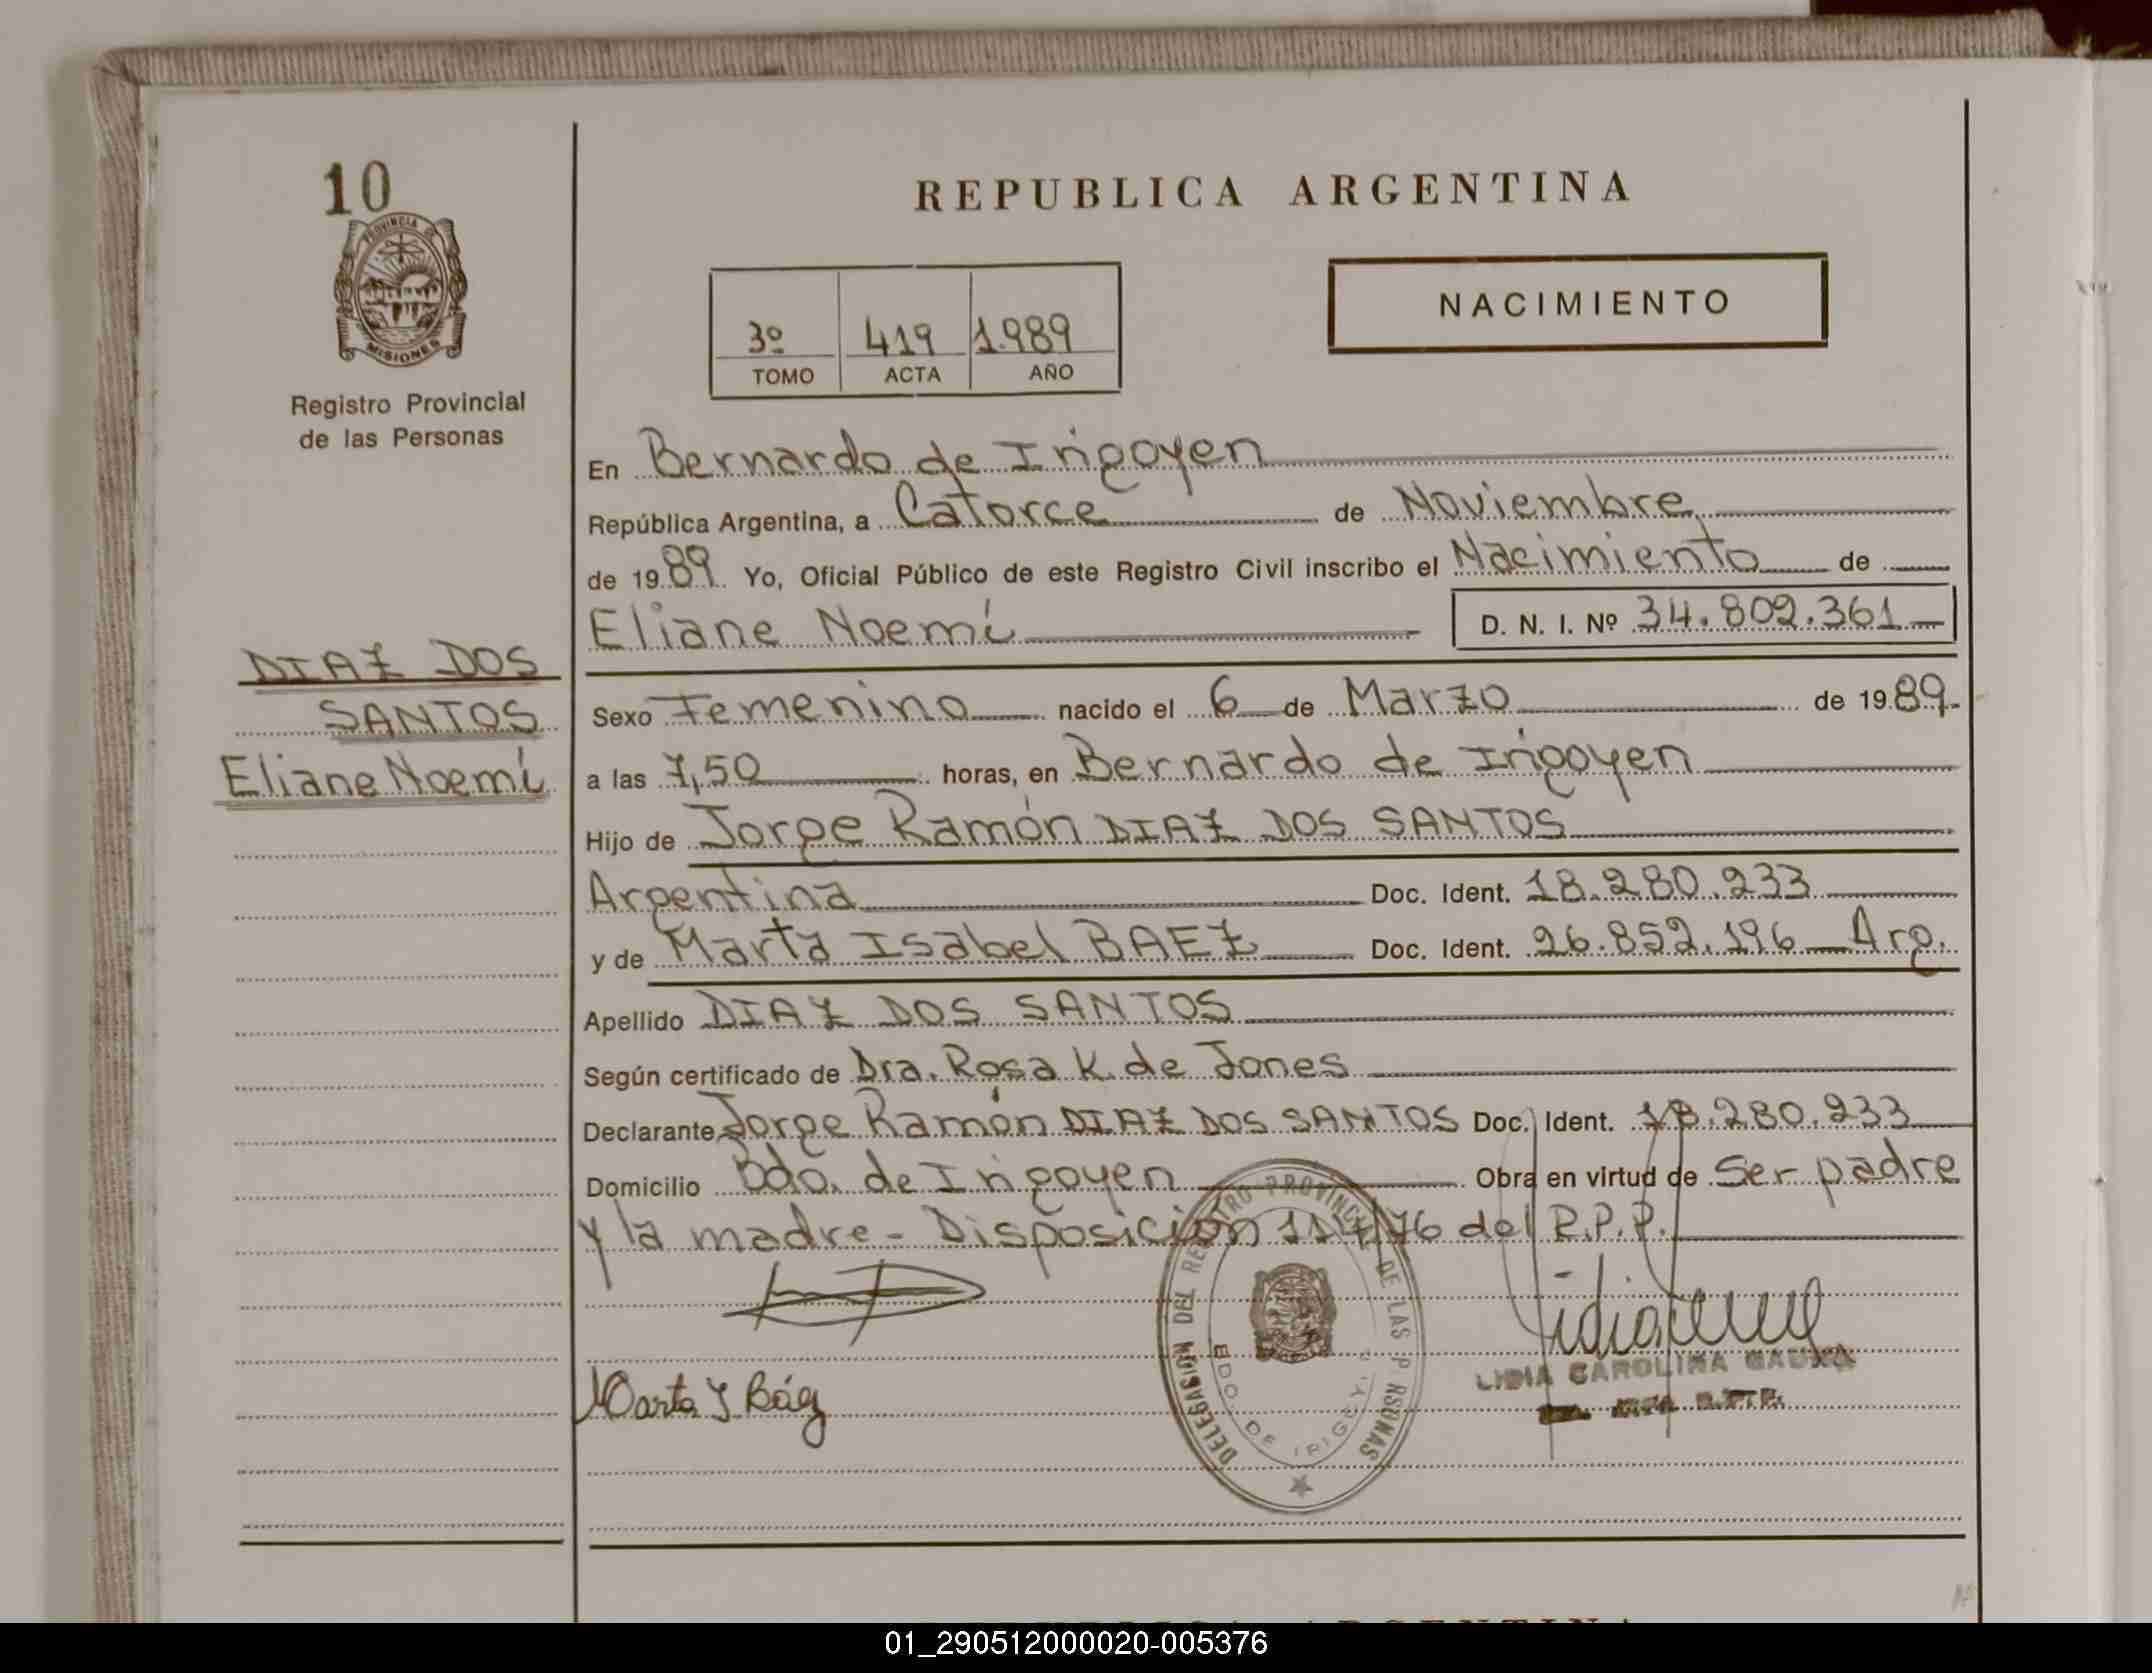 10
PROVINCIA DE
MISIONES
Registro Provincial
de las Personas
DIAZ DOS
SANTOS
Eliane Noemí
REPUBLICA ARGENTINA
3º 419 1.989
TOMO ACTA AÑO
NACIMIENTO
En Bernardo de Irigoyen
República Argentina, a Catorce de Noviembre
de 1989. Yo, Oficial Público de este Registro Civil inscribo el Nacimiento de
Eliane Noemí D. N. I. Nº 34.802.361
Sexo Femenino nacido el 6 de Marzo de 1989.
a las 7,50 horas, en Bernardo de Irigoyen
Hijo de Jorge Ramón DIAZ DOS SANTOS
Argentina Doc. Ident. 18.280.233
y de Marta Isabel BAEZ Doc. Ident. 26.852.196 Arg.
Apellido DIAZ DOS SANTOS
Según certificado de Dra. Rosa K. de Jones
Declarante Jorge Ramón DIAZ DOS SANTOS Doc. Ident. 18.280.233
Domicilio Bdo. de Irigoyen Obra en virtud de Ser padre
y la madre - Disposición 117/76 del R.P.P.
DELEGACION DEL REGISTRO PROVINCIAL DE LAS PERSONAS
BDO. DE IRIGOYEN
LIDIA CAROLINA
Marta I Báez
01_290512000020-005376